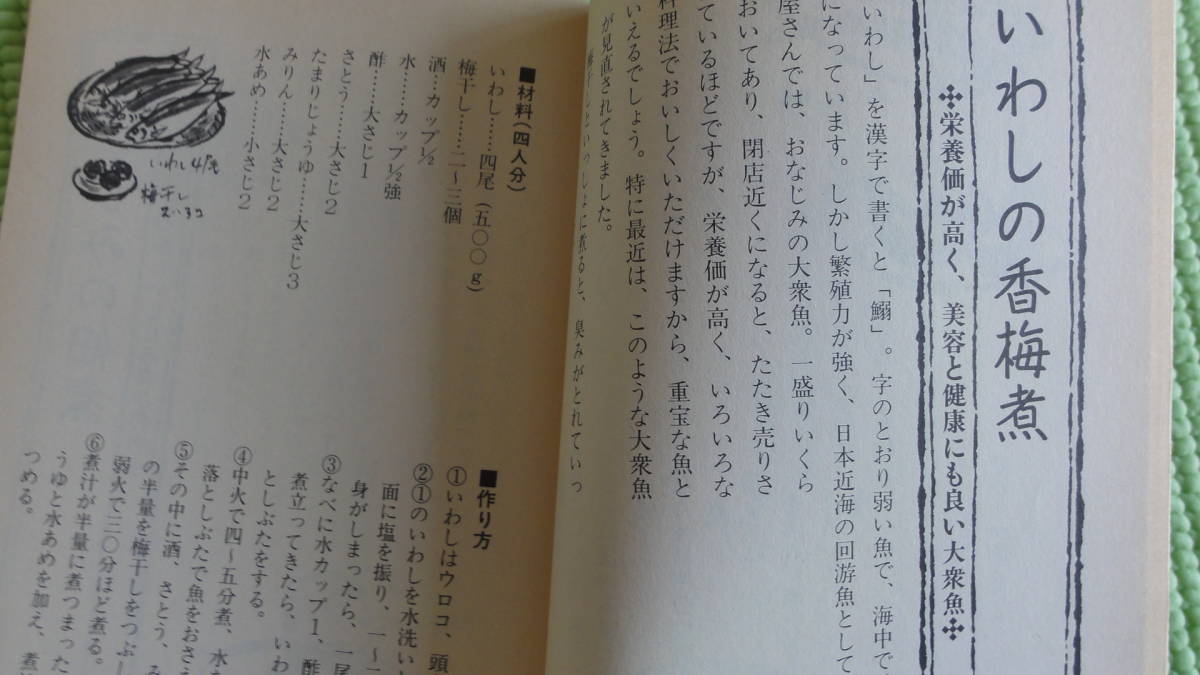 いわしの香梅煮
✣栄養価が高く、美容と健康にも良い大衆魚✣
いわし」を漢字で書くと「鰯」。字のとおり弱い魚で、海中で
になっています。しかし繁殖力が強く、日本近海の回游魚として
屋さんでは、おなじみの大衆魚。一盛りいくら
おいてあり、閉店近くになると、たたき売りさ
ているほどですが、栄養価が高く、いろいろな
料理法でおいしくいただけますから、重宝な魚と
いえるでしょう。特に最近は、このような大衆魚
が見直されてきました。
梅干しといっしょに煮ると、臭みがとれていっ
■材料(四人分)
いわし……四尾(五〇〇g)
梅干し……二〜三個
酒……カップ1/2
水……カップ1/2強
酢……大さじ1
さとう……大さじ2
たまりじょうゆ……大さじ3
みりん……大さじ2
水あめ……小さじ2
いわし4尾
梅干し
■作り方
①いわしはウロコ、頭
②①のいわしを水洗い
面に塩を振り、一〜
身がしまったら、一尾
③なべに水カップ1、酢
煮立ってきたら、いわ
としぶたをする。
④中火で四〜五分煮、水
落としぶたで魚をおさえ
⑤その中に酒、さとう、み
の半量を梅干しをつぶし
弱火で三〇分ほど煮る。
⑥煮汁が半量に煮つまった
うゆと水あめを加え、煮
つめる。